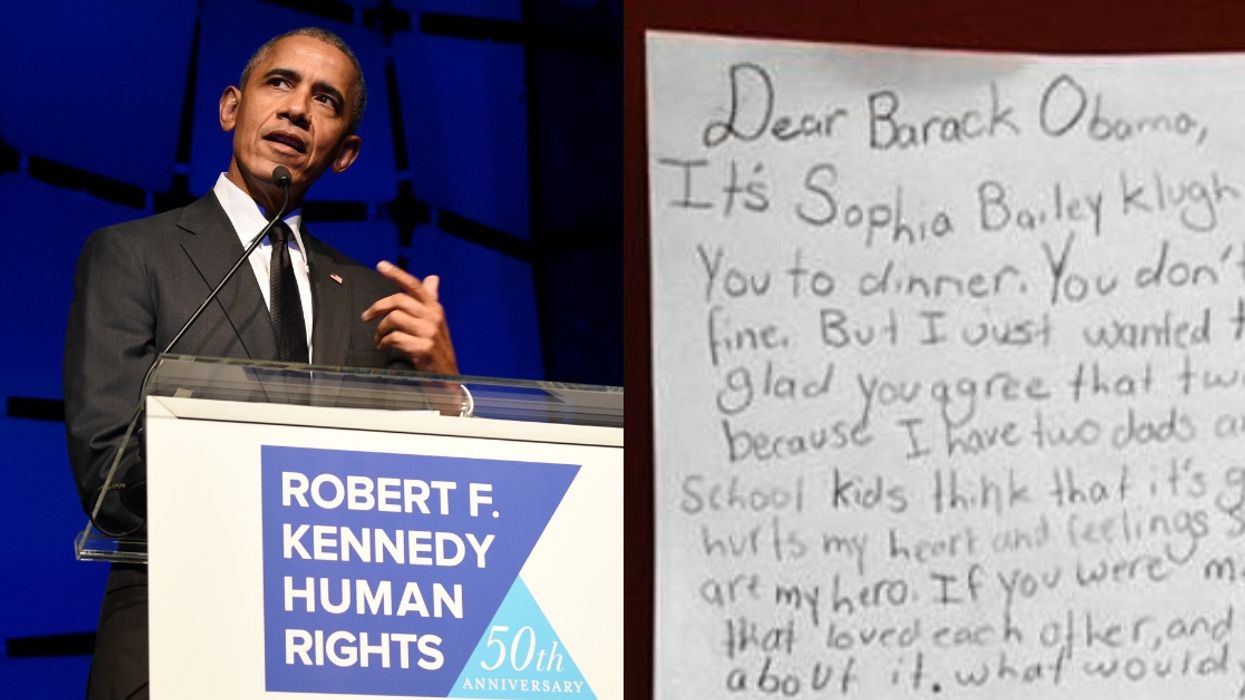 ROBERT F.
KENNEDY
HUMAN
RIGHTS
50th
ANNIVERSARY
Dear Barack Obama,
It's Sophia Bailey Klugh
You to dinner. You don't
fine. But I just wanted t
glad you agree that tw
because I have two dads a
School kids think that it's g
hurts my heart and feelings S
are my hero. If you were m
that loved each other, and
about it. what would